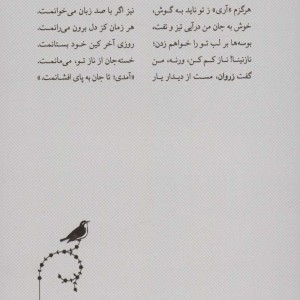 هرگزم «آری» ز تو ناید به گوش، نیز اگر با صد زبان می‌خوانمت.
خوش به جان من درآیی تیز و تفت، هر زمان کز دل برون می‌رانمت.
بوسه‌ها بر لب تو را خواهم زدن؛ روزی آخر کین خود بستانمت.
نازنینا! ناز کم کن، ورنه، من خسته‌جان از ناز تو، می‌مانمت.
گفت زروان، مست از دیدار یار «آمدی؛ تا جان به پای افشانمت.»